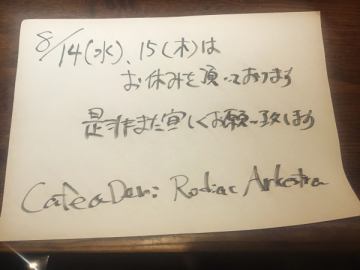 8/14(水)、15(木)は
お休みを頂いております
是非また宜しくお願い致します
Cafe a Dan: Rodiac Arkestra